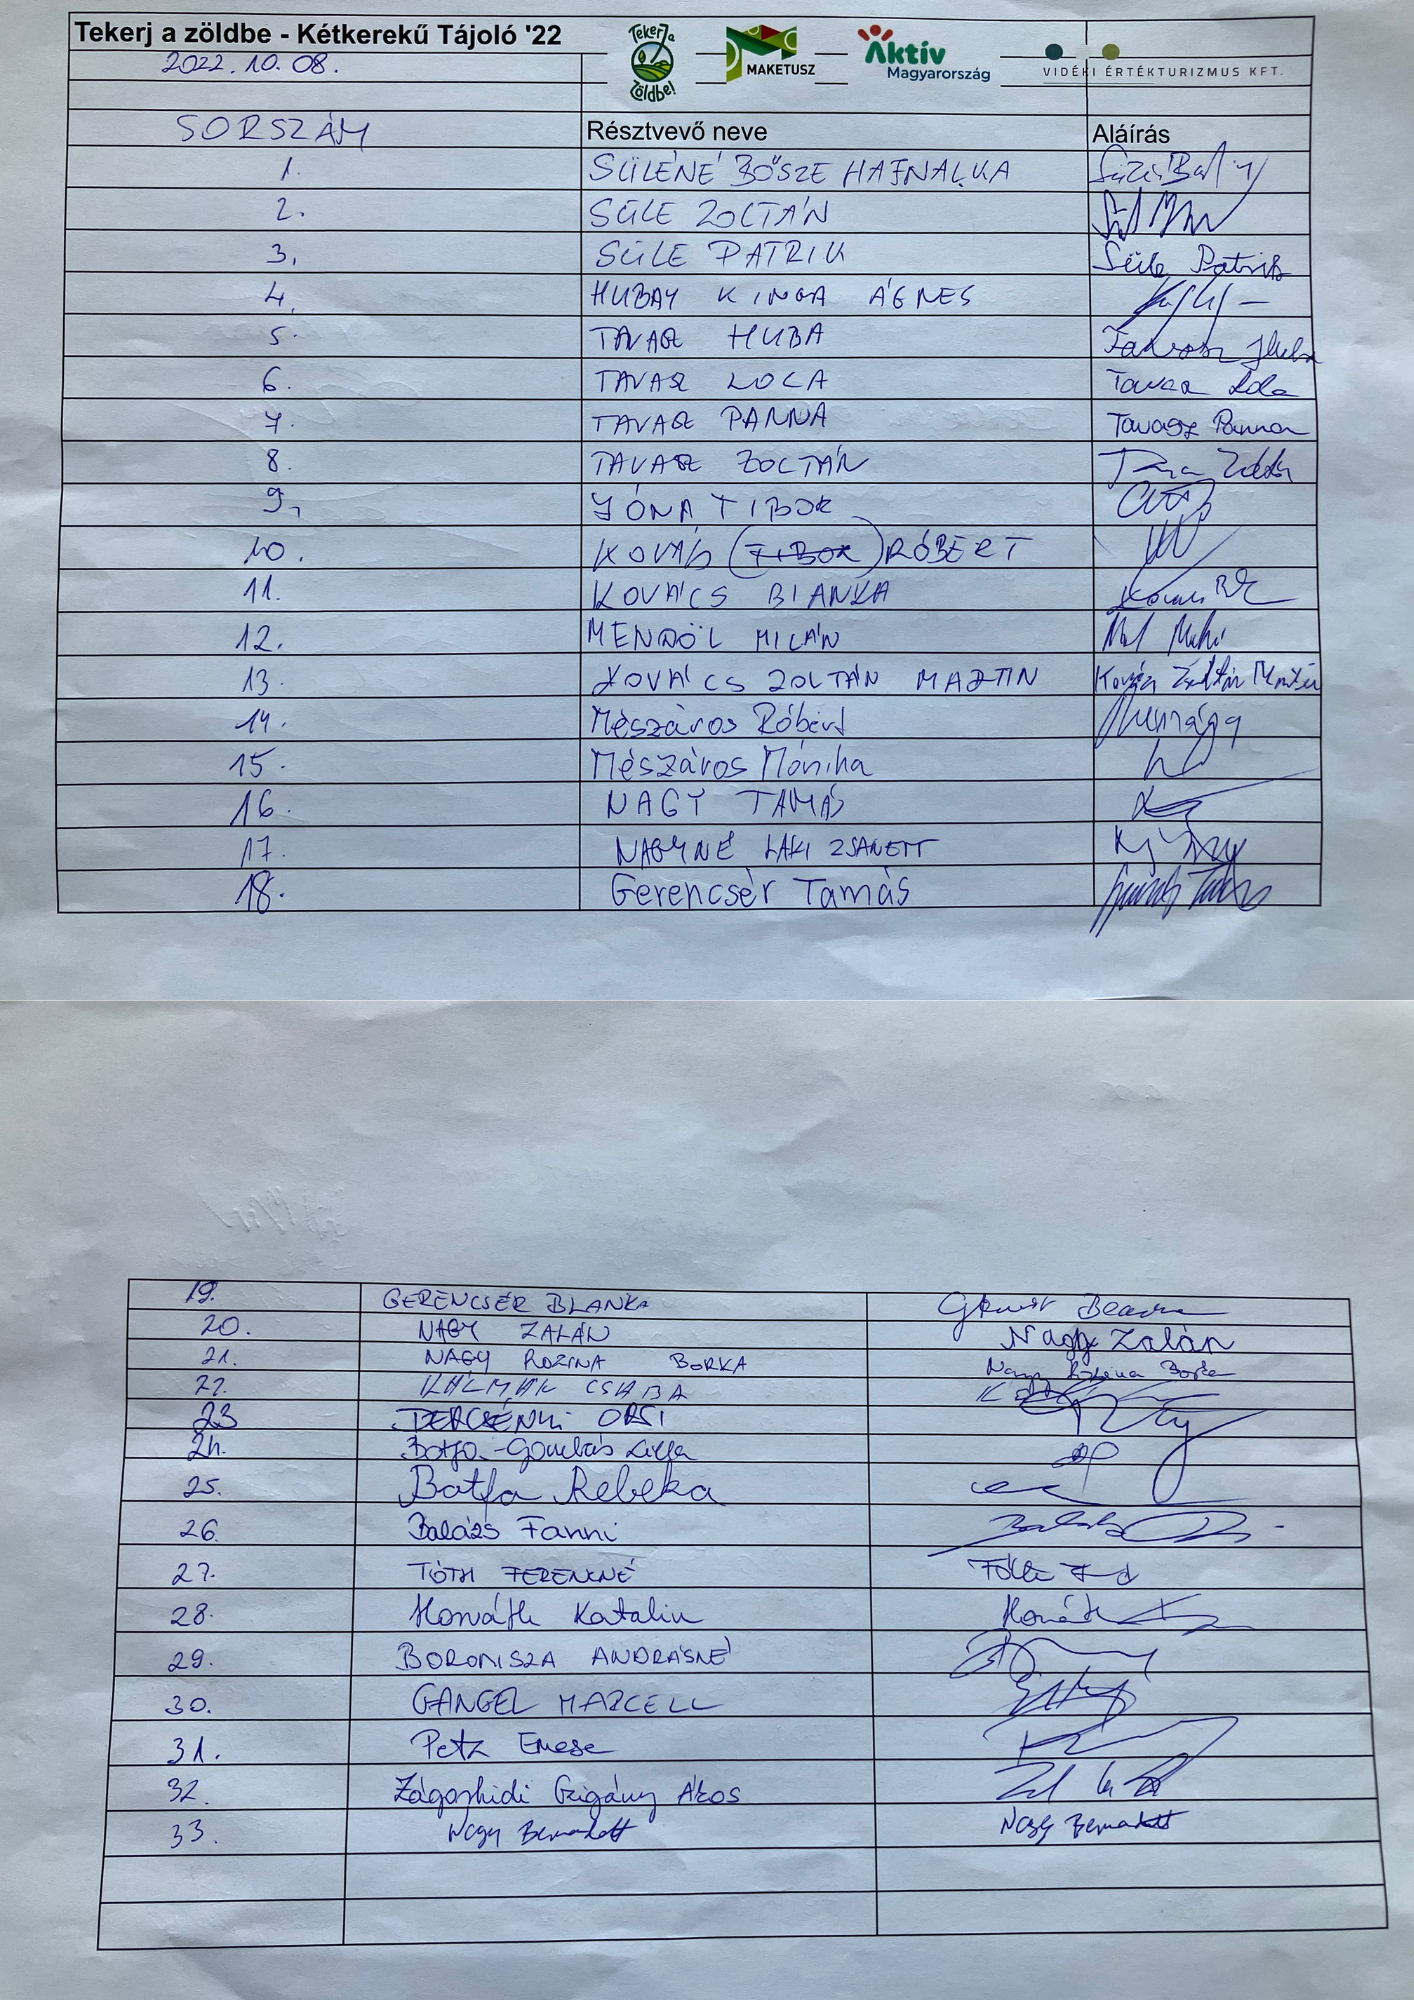 Tekerj a zöldbe - Kétkerekű Tájoló '22
Tekerj a zöldbe!
MAKETUSZ
Aktív Magyarország
VIDÉKI ÉRTÉKTURIZMUS KFT.
2022.10.08.
SORSZÁM Résztvevő neve Aláírás
1. SÜLÉNÉ BŐSZE HAJNALKA
2. SÜLE ZOLTÁN
3. SÜLE PATRIK Süle Patrik
4. HUBAY KINGA ÁGNES
5. TAVASZ HUBA Tavasz Huba
6. TAVASZ LOLA Tavasz Lola
7. TAVASZ PANNA Tavasz Panna
8. TAVASZ ZOLTÁN
9. JÓNA TIBOR
10. KOVÁCS TIBOR RÓBERT
11. KOVÁCS BIANKA
12. MENDÖL MILÁN
13. KOVÁCS ZOLTÁN MARTIN Kovács Zoltán Martin
14. Mészáros Róbert
15. Mészáros Mónika
16. NAGY TAMÁS
17. NAGYNÉ LAKI ZSANETT
18. Gerencsér Tamás
19. GERENCSÉR BLANKA
20. NAGY ZALÁN Nagy Zalán
21. NAGY ROZINA BORKA Nagy Rozina Borka
22. KÁLMÁN CSABA
23 ORSI
24. Batfa-Gombás Lilla
25. Batfa Rebeka
26. Balázs Fanni
27. TÓTH FERENCNÉ
28. Horváth Katalin Horváth
29. BORONISZA ANDRÁSNÉ
30. GANGEL MARCELL
31. Petz Emese
32. Zágorhidi Czigány Ákos
33. Nagy Bernadett Nagy Bernadett